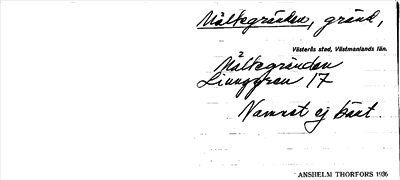 Mältegränden, gränd,
Västerås stad, Västmanlands län.
Mältegränden
Linngren 17
Namnet ej känt.
ANSHELM THORFORS 1936